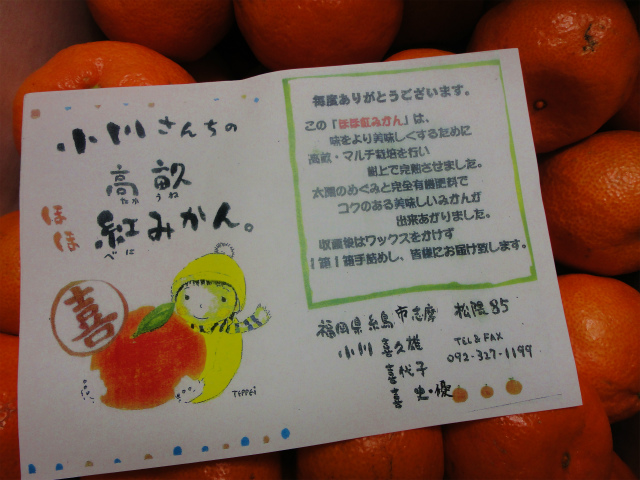 小川さんちの
高畝
たかうね
ほほ
紅みかん。
べに
喜
TEPPEI
毎度ありがとうございます。
この「ほほ紅みかん」は、
味をより美味しくするために
高畝・マルチ栽培を行い
樹上で完熟させました。
太陽のめぐみと完全有機肥料で
コクのある美味しいみかんが
出来あがりました。
収穫後はワックスをかけず
1箱1箱手詰めし、皆様にお届け致します。
福岡県糸島市志摩 松隈85
小川 喜久雄
喜代子
喜 史・優
TEL&FAX
092-327-1199